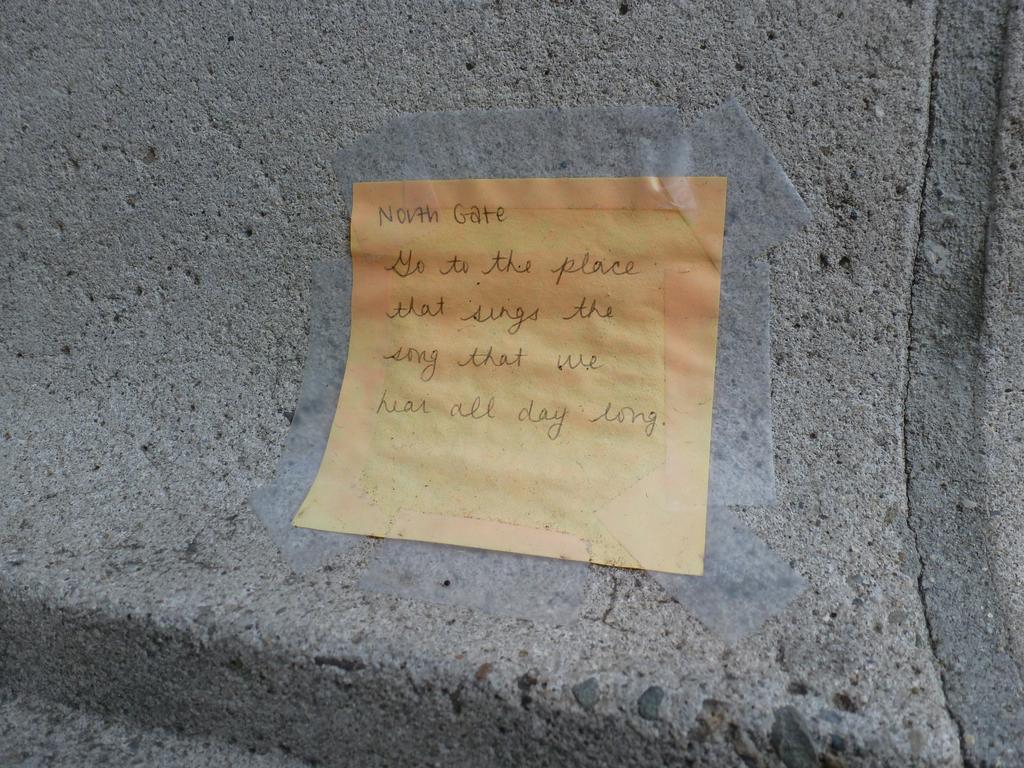 North Gate
Go to the place
that sings the
song that we
hear all day long.